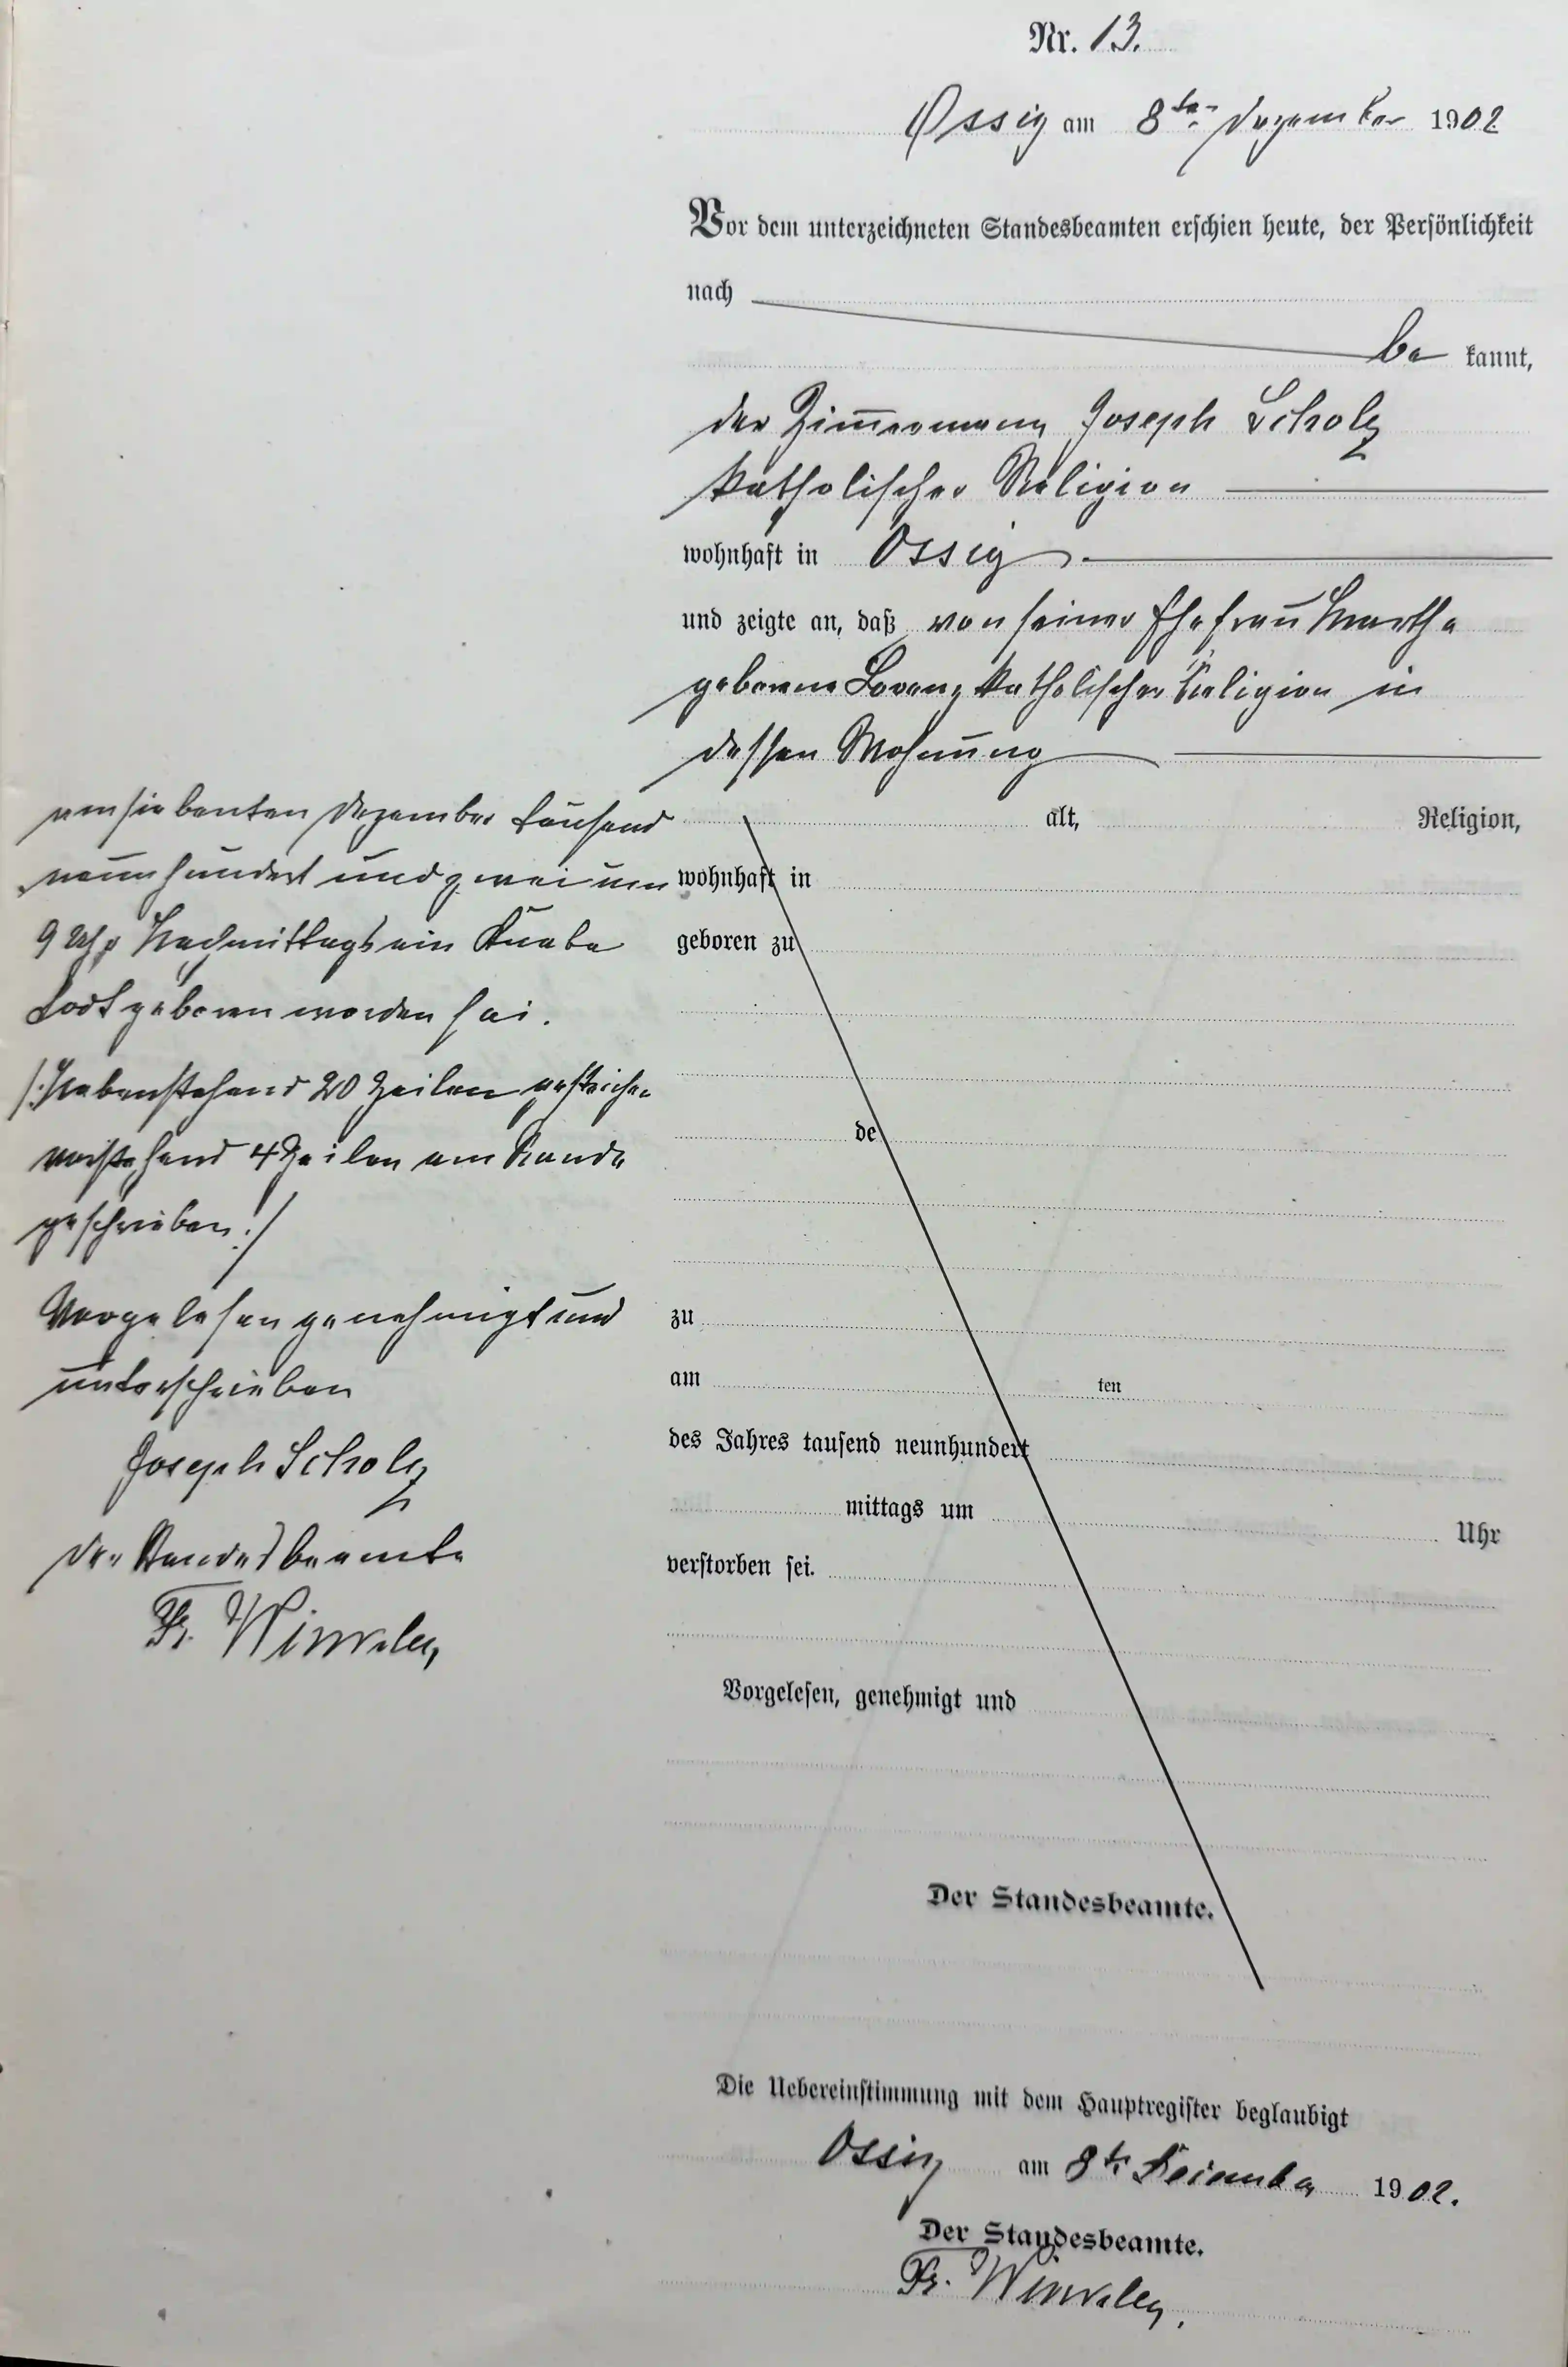 Nr. 13.
Ossig am 8ten Dezember 1902
Vor dem unterzeichneten Standesbeamten erschien heute, der Persönlichkeit
nach
be kannt,
der Zimmermann Joseph Scholz
katholischer Religion
wohnhaft in Ossig
und zeigte an, daß von seiner Ehefrau Martha
geborene Lorenz katholischer Religion in
dessen Wohnung
am siebenten Dezember tausend
neunhundert und zwei um
9 Uhr Nachmittags ein Knabe
todt geboren worden sei.
/: Nebenstehend 20 Zeilen gestrichen
vorstehend 4 Zeilen am Rande
geschrieben :/
Vorgelesen genehmigt und
unterschrieben
Joseph Scholz
Der Standesbeamte
Fr.
alt, Religion,
wohnhaft in
geboren zu
de
zu
am ten
des Jahres tausend neunhundert
mittags um Uhr
verstorben sei.
Vorgelesen, genehmigt und
Der Standesbeamte.
Die Uebereinstimmung mit dem Hauptregister beglaubigt
Ossig am 8te Dezember 1902.
Der Standesbeamte.
Fr.